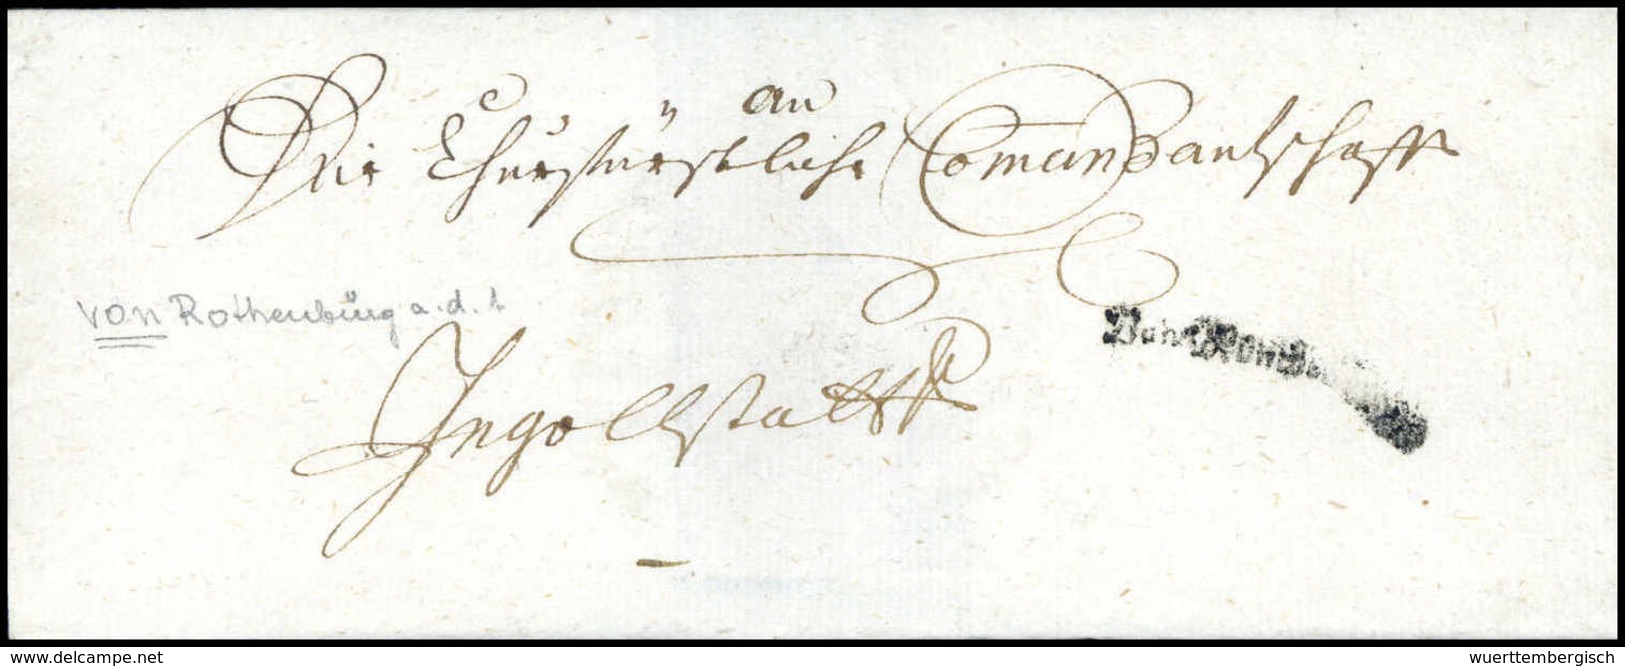 an
Die Churfürstliche Comandantschafft
von Rothenburg a. d. t
Ingollstatt
Von
www.delcampe.net
wuerttembergisch